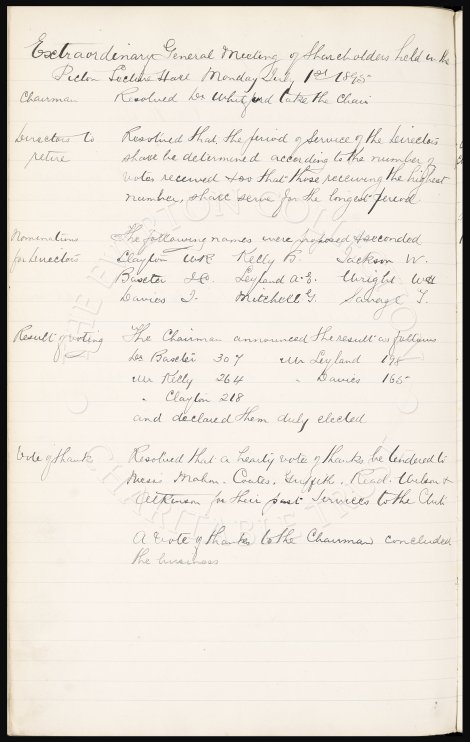 Extraordinary General Meeting of Shareholders held in the
Picton Lecture Hall Monday July 1st 1895
Chairman Resolved Dr Whitford take the Chair
Directors to Resolved that the period of Service of the Directors
retire shall be determined according to the number of
votes received & so that those receiving the highest
number, shall serve for the longest period
Nominations The following names were proposed & seconded
for Directors Clayton WR Kelly R. Jackson W.
Baxter J.C. Leyland A.E. Wright WH
Davies J. Mitchell G. Savage T.
Result of Voting The Chairman announced the result as follows
Dr Baxter 307 Mr Leyland
Mr Kelly 264 " Davies 165
" Clayton 218
and declared them duly elected
Vote of thanks Resolved that a hearty vote of thanks be tendered to
Messrs Mahon. Coates. Griffith. Read. Wilson &
Atkinson for their past Services to the Club
A vote of thanks to the Chairman concluded
the business
THE EVERTON COLLECTION
CHARITABLE TRUST